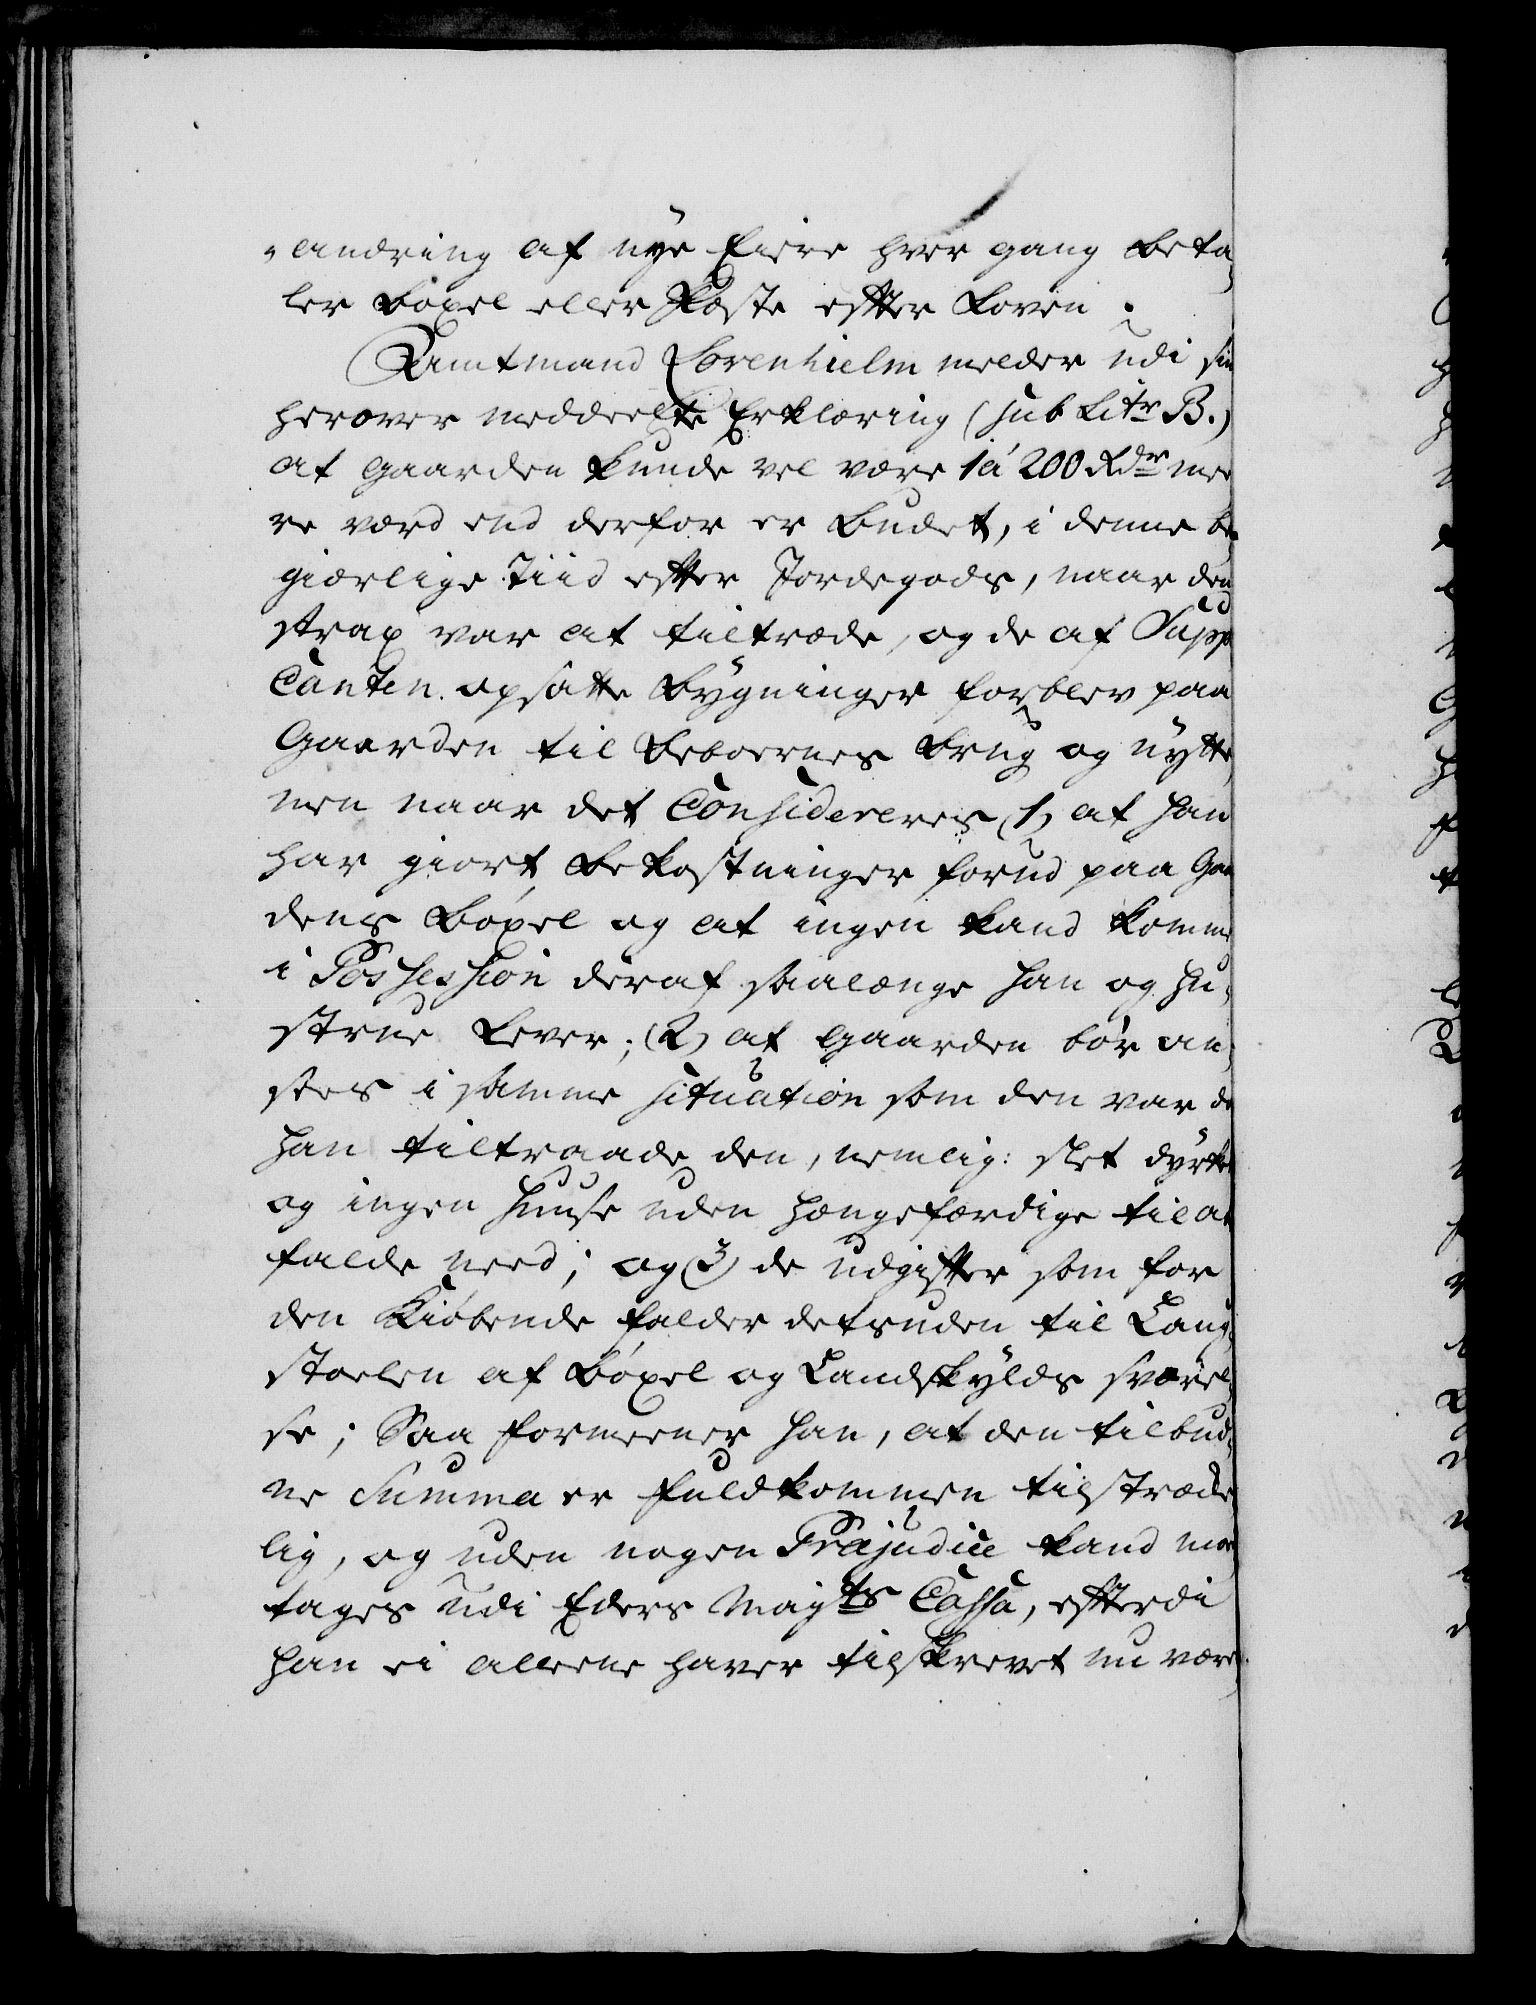 andring af nye Eiere hver gang beta¬
ler böxel eller Fæste efter Loven.
Amtmand Sorenhielm melder udi sin
herover meddeelte Erklæring (sub Litr B.)
at gaarden kunde vel være 1 á 200 Rdr mee
re værd end derfor er budet, i denne be¬
giærlige Tiid efter Jordegods, naar den
strax var at tiltræde, og de af Supp
canten opsatte bygninger forblev paa
Gaarden til beboernes brug og nytte,
men naar det Considereres (1) at han
har giort bekostninger forud paa Gaar
dens böxel og at ingen kand komme
i Possession deraf saalænge han og Hu¬
strue lever; (2) at gaarden bör an¬
sees i samme situation som den var da
han tiltraade den, nemlig: slet dyrket
og ingen Huuse uden hængefærdige til at
falde need; og (3) de udgifter som for
den Kiöbende falder desuden til Laug¬
stoelen af böxel og Landskylds sværel¬
se; Saa formeener han, at den tilbud¬
ne Summa er fuldkommen tilstrække
lig, og uden nogen Præjudice kand mod
tages udi Eders Maÿts Cassa, efterdi
han ei alleene haver tilskrevet nu være¬